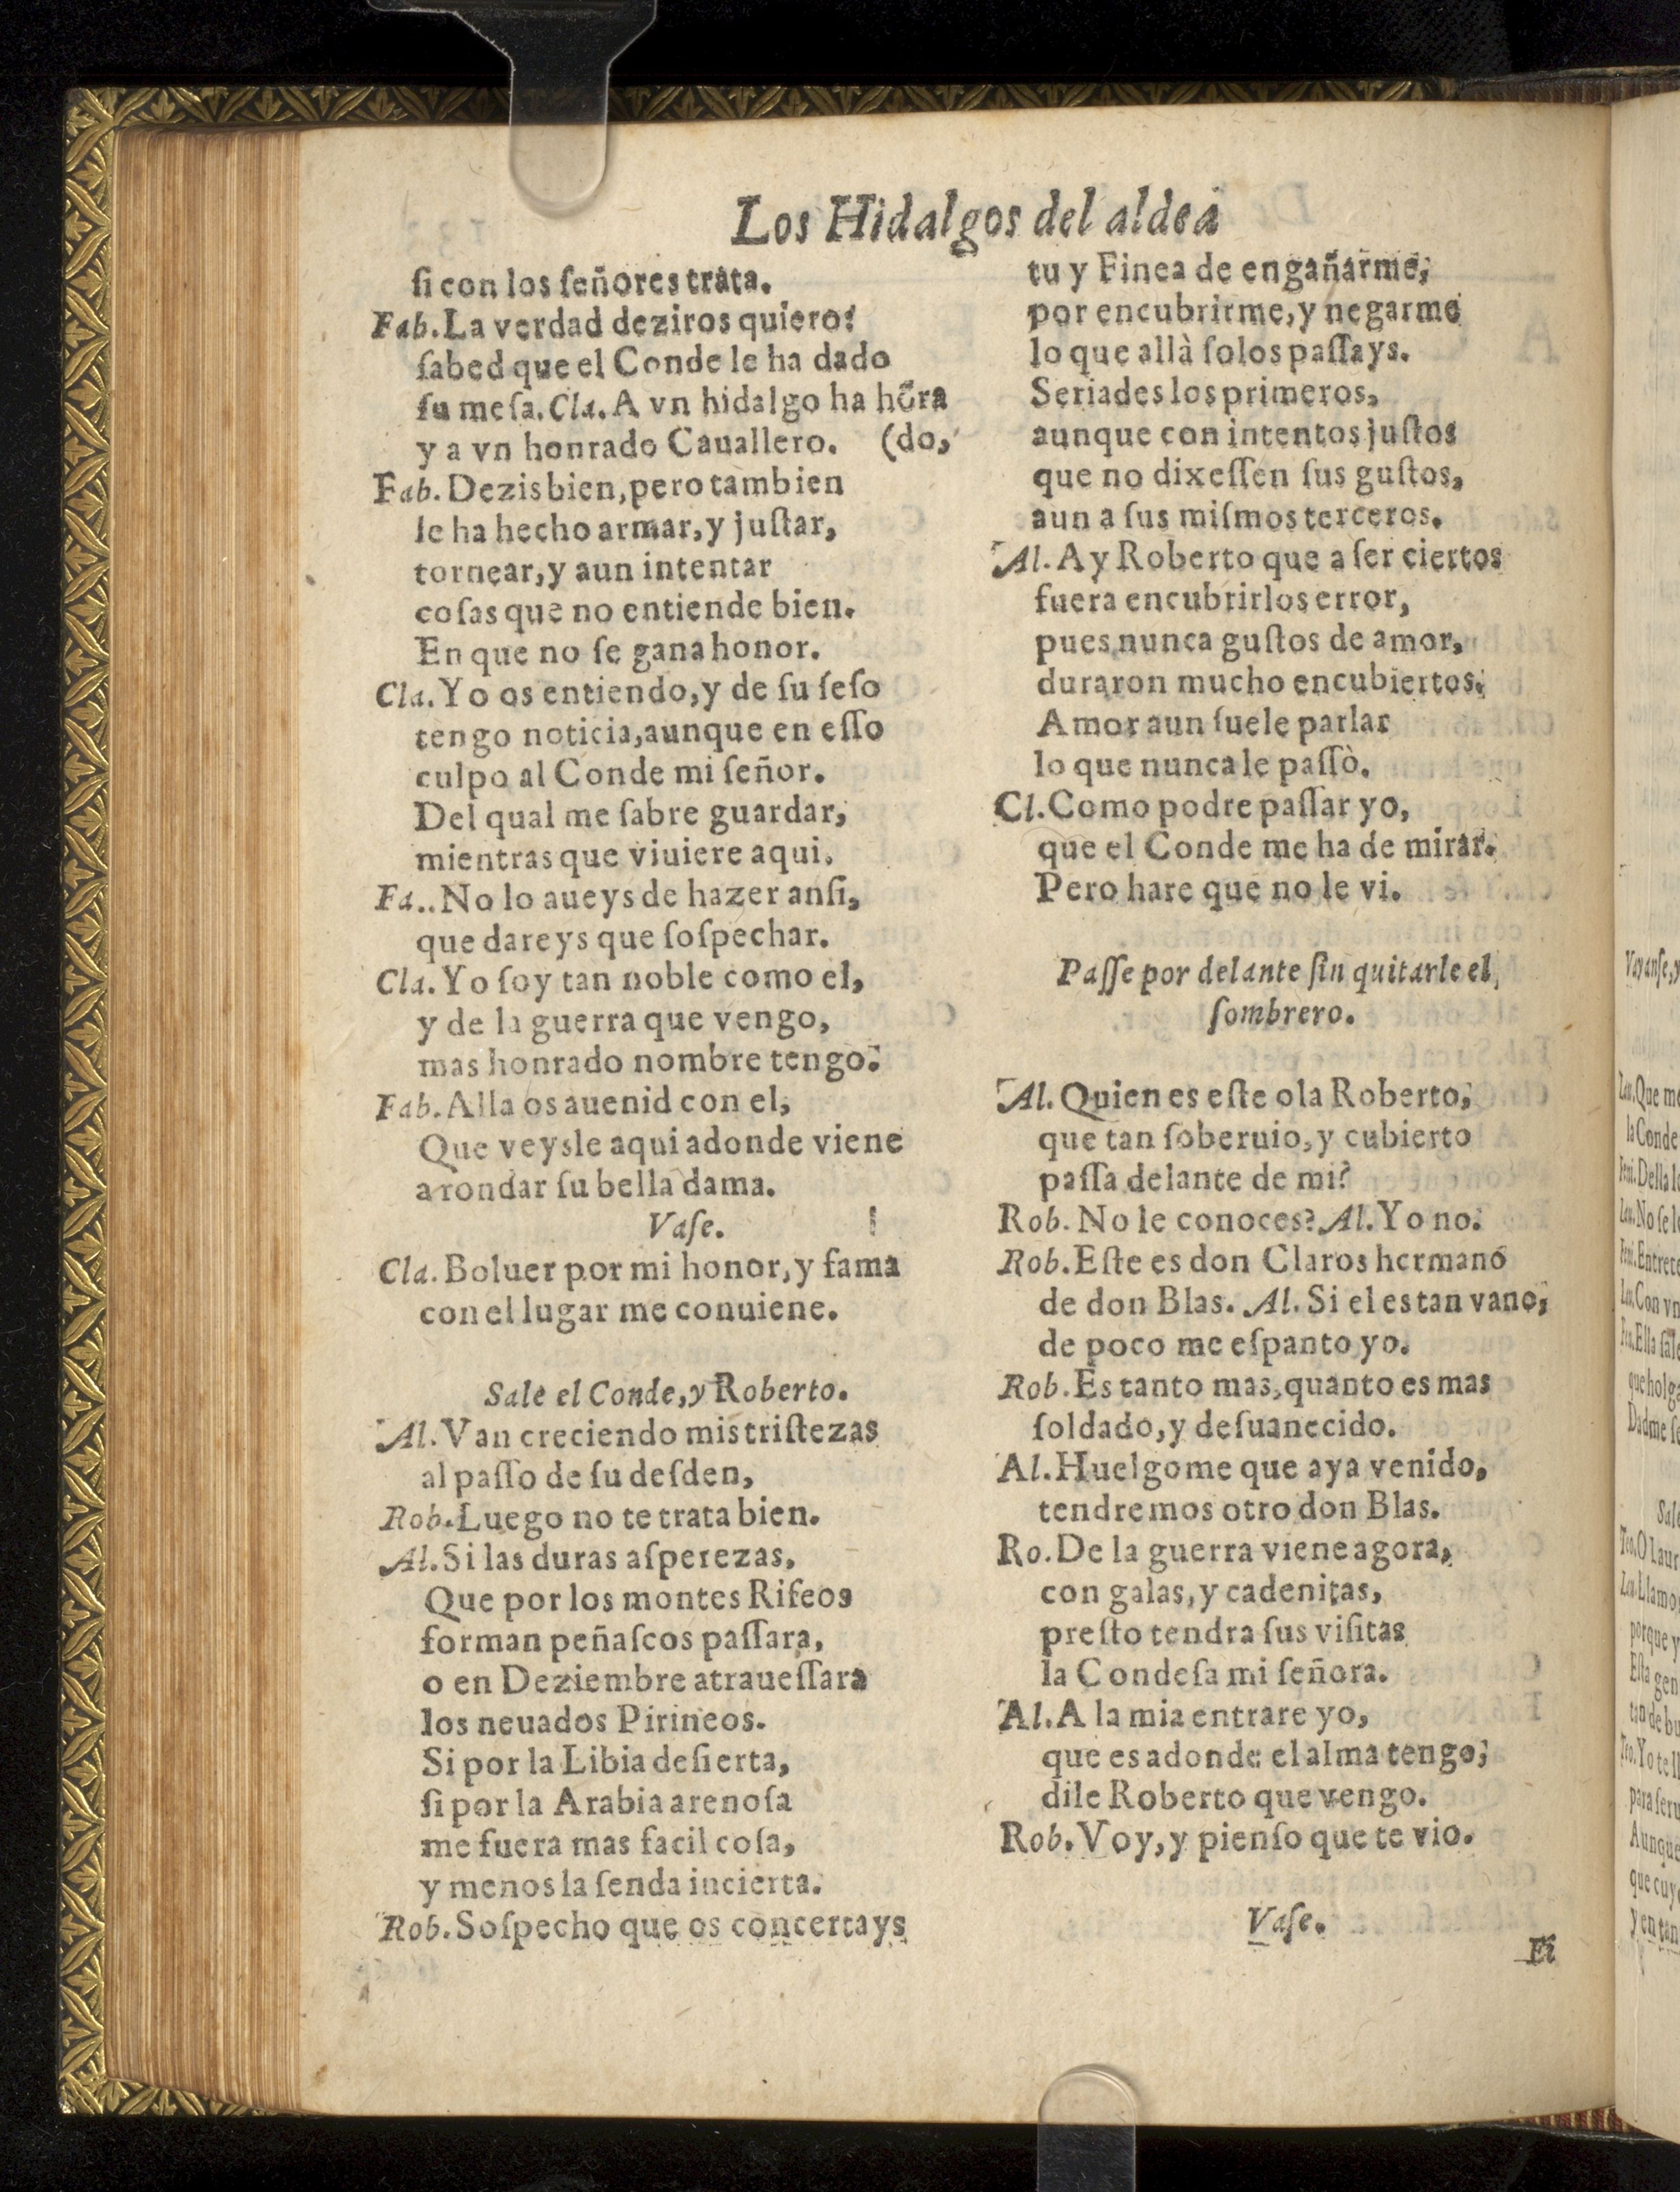 Los Hidalgos del aldea
ſi con los ſeñores trata.
Fab. La verdad deziros quiero:
ſabed que el Conde le ha dado
ſu meſa. Cla. A vn hidalgo ha hõra
y a vn honrado Cauallero. (do,
Fab. Dezis bien, pero tambien
le ha hecho armar, y juſtar,
tornear, y aun intentar
coſas que no entiende bien.
En que no ſe gana honor.
Cla. Yo os entiendo, y de ſu ſeſo
tengo noticia, aunque en eſſo
culpo al Conde mi ſeñor.
Del qual me ſabre guardar,
mientras que viuiere aqui.
Fa.. No lo aueys de hazer anſi,
que dareys que ſoſpechar.
Cla. Yo ſoy tan noble como el,
y de la guerra que vengo,
mas honrado nombre tengo.
Fab. Alla os auenid con el,
Que veysle aqui adonde viene
a rondar ſu bella dama.
Vaſe.
Cla. Boluer por mi honor, y fama
con el lugar me conuiene.
Sale el Conde, y Roberto.
Al. Van creciendo mis triſtezas
al paſſo de ſu deſden,
Rob. Luego no te trata bien.
Al. Si las duras aſperezas,
Que por los montes Rifeos
forman peñaſcos paſſara,
o en Deziembre atraueſſara
los neuados Pirineos.
Si por la Libia deſierta,
ſi por la Arabia arenoſa
me fuera mas facil coſa,
y menos la ſenda incierta.
Rob. Soſpecho que os concertays
tu y Finea de engañarme,
por encubrirme, y negarme
lo que allà ſolos paſſays.
Seriades los primeros,
aunque con intentos juſtos
que no dixeſſen ſus guſtos,
aun a ſus miſmos terceros.
Al. Ay Roberto que a ſer ciertos
fuera encubrirlos error,
pues nunca guſtos de amor,
duraron mucho encubiertos.
Amor aun ſuele parlar
lo que nunca le paſſò.
Cl. Como podre paſſar yo,
que el Conde me ha de mirar.
Pero hare que no le vi.
Paſſe por delante ſin quitarle el
ſombrero.
Al. Quien es eſte ola Roberto,
que tan ſoberuio, y cubierto
paſſa delante de mi?
Rob. No le conoces? Al. Yo no.
Rob. Eſte es don Claros hermano
de don Blas. Al. Si el es tan vano,
de poco me eſpanto yo.
Rob. Es tanto mas, quanto es mas
ſoldado, y deſuanecido.
Al. Huelgome que aya venido,
tendremos otro don Blas.
Ro. De la guerra viene agora,
con galas, y cadenitas,
preſto tendra ſus viſitas
la Condeſa mi ſeñora.
Al. A la mia entrare yo,
que es adonde el alma tengo,
dile Roberto que vengo.
Rob. Voy, y pienſo que te vio.
Vaſe.
Fi